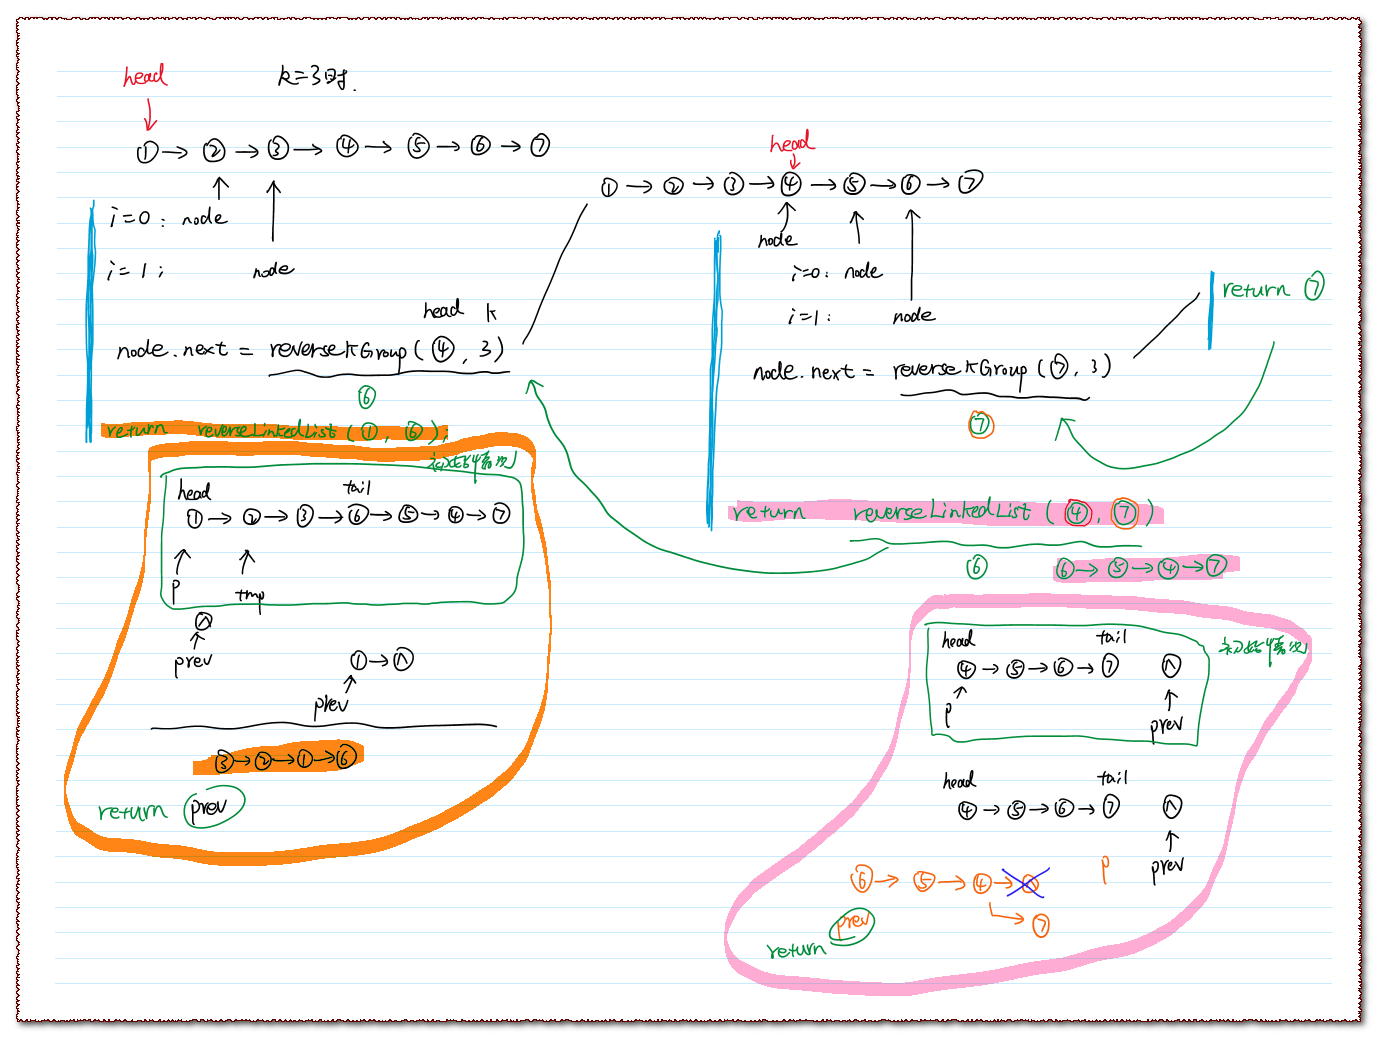 head
k=3时.
① → ② → ③ → ④ → ⑤ → ⑥ → ⑦
i=0: node
i=1; node
head k
node.next = reverseKGroup(④, 3)
⑥
return reverseLinkedList(①, ⑥);
初始情况
head tail
① → ② → ③ → ⑥ → ⑤ → ④ → ⑦
p tmp
∧
prev
① → ∧
prev
③ → ② → ① → ⑥
return prev
head
① → ② → ③ → ④ → ⑤ → ⑥ → ⑦
node
i=0: node
i=1: node
node.next = reverseKGroup(⑦, 3)
⑦
return ⑦
return reverseLinkedList(④, ⑦)
⑥ ⑥ → ⑤ → ④ → ⑦
初始情况
head tail
④ → ⑤ → ⑥ → ⑦ ∧
p prev
head tail
④ → ⑤ → ⑥ → ⑦ ∧
p prev
⑥ → ⑤ → ④ →
prev ⑦
return